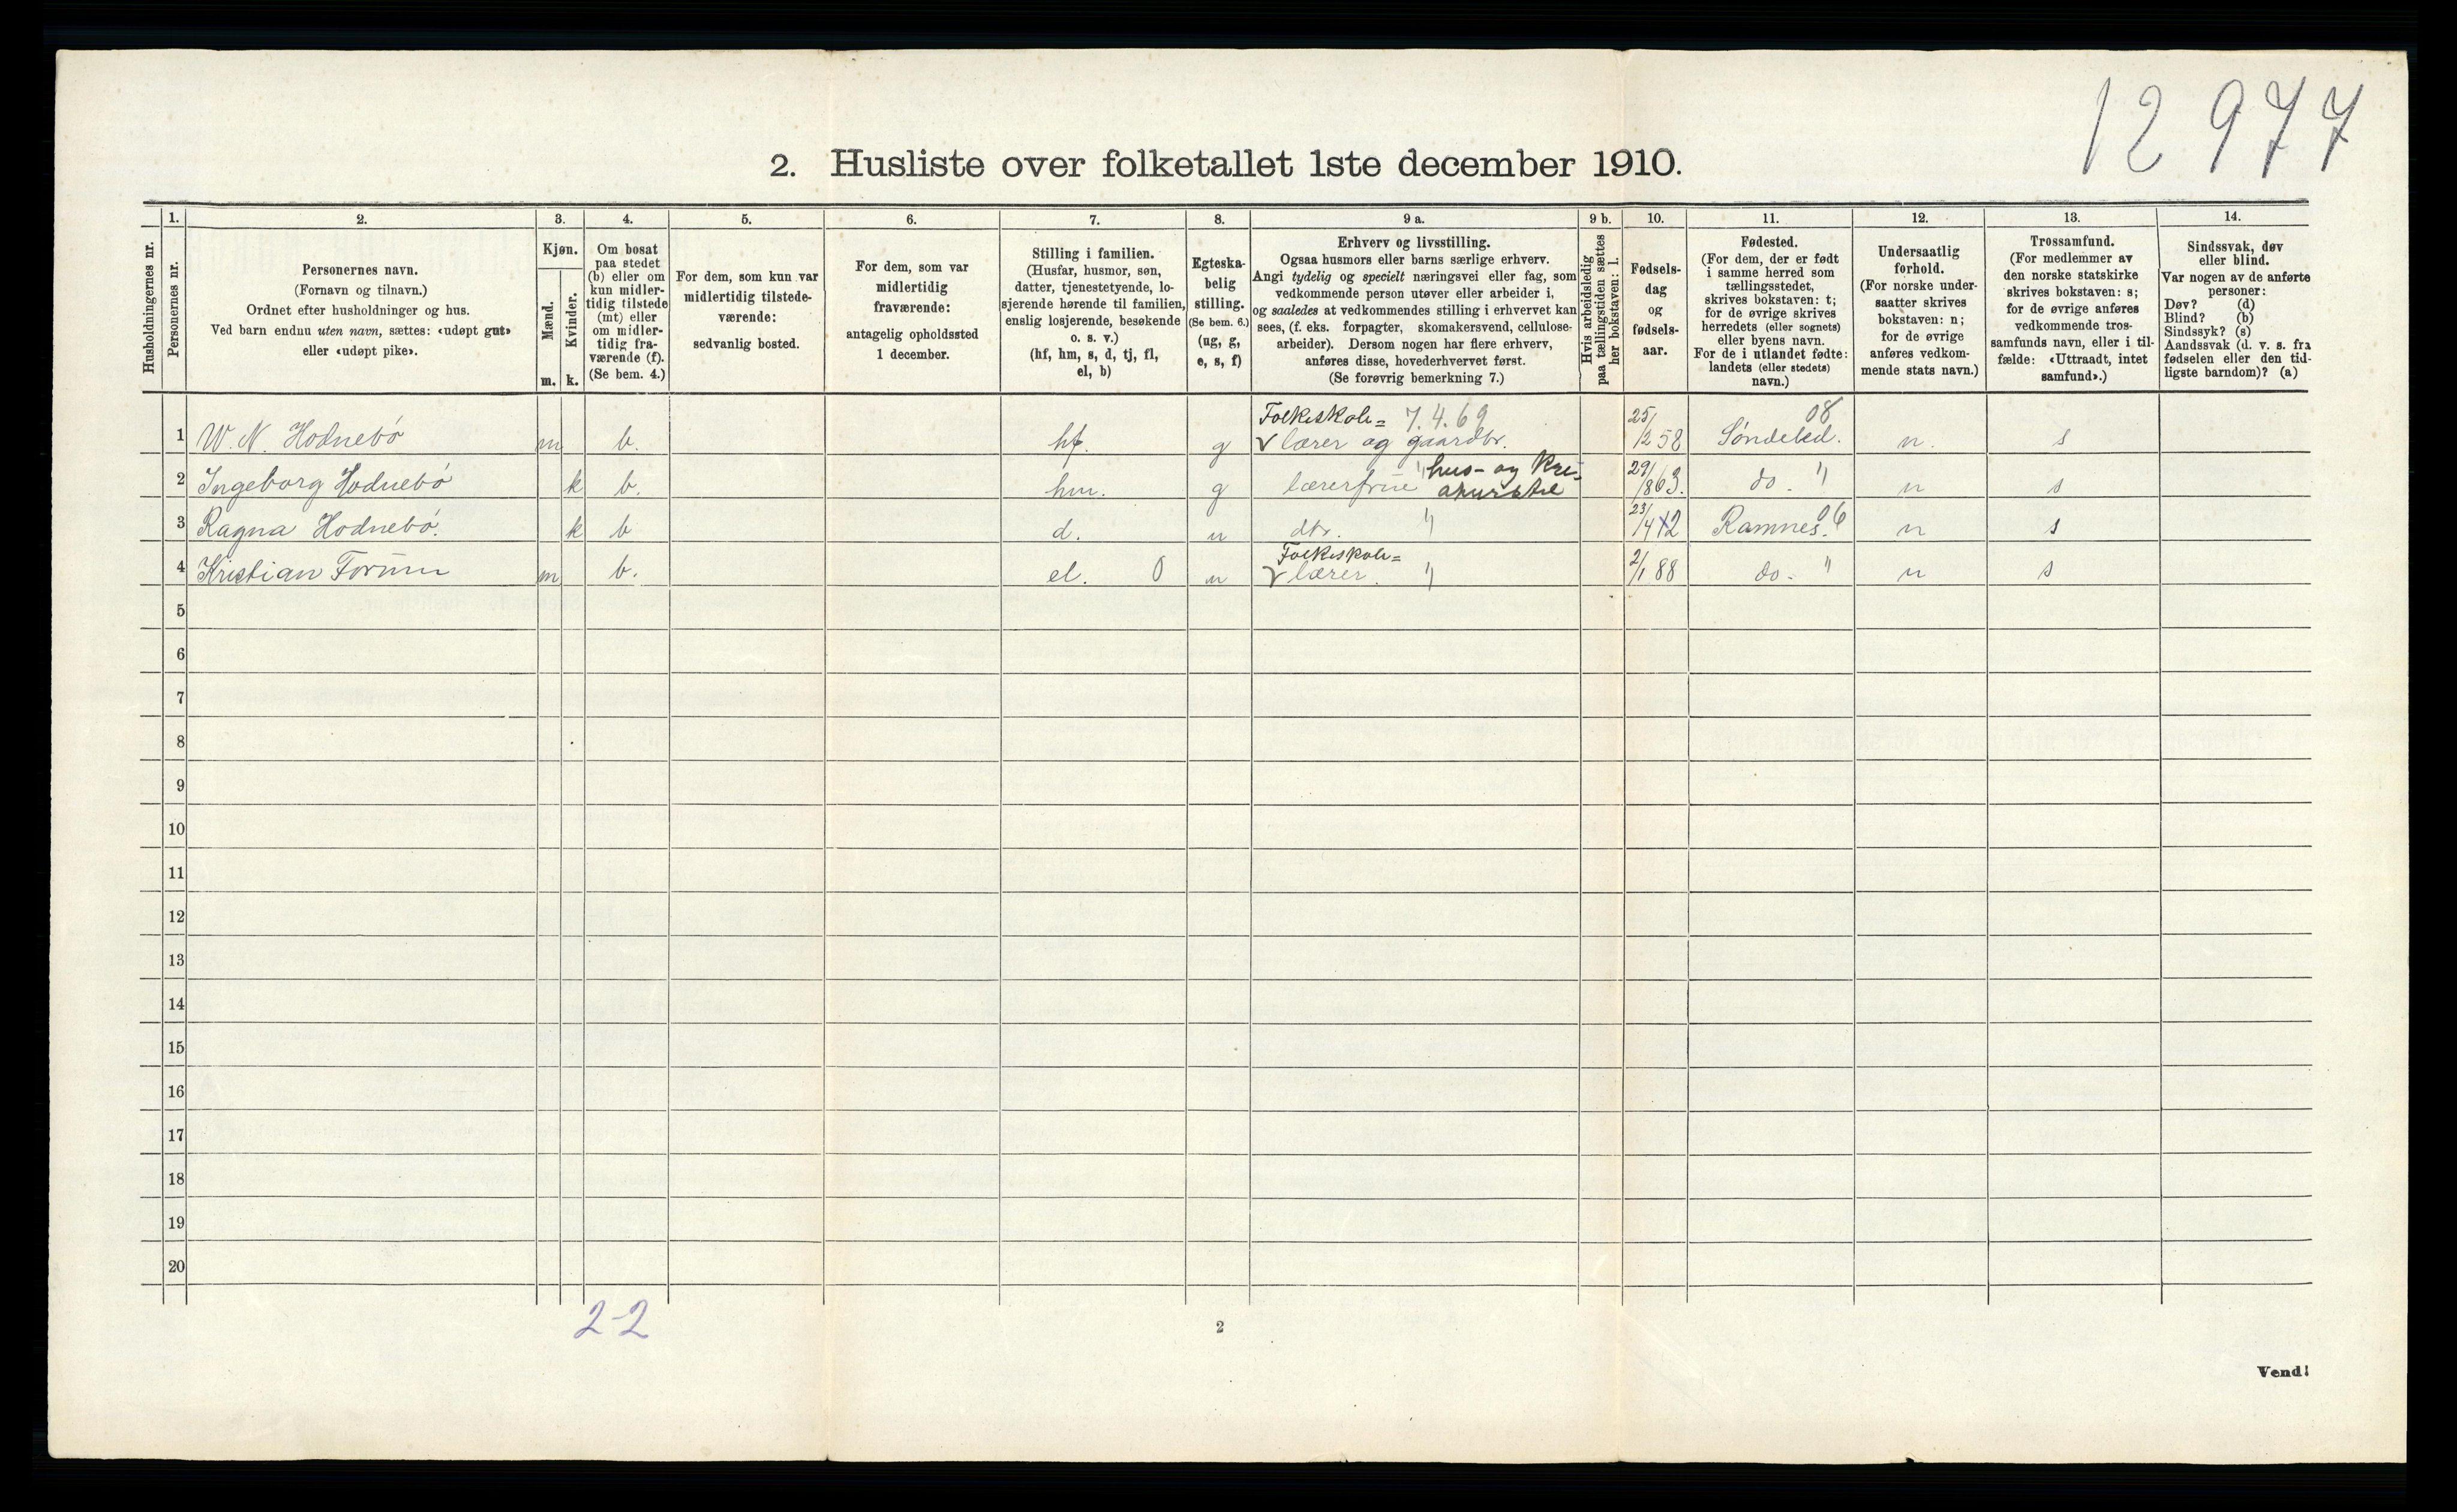 12 977
2. Husliste over folketallet 1ste december 1910.
Husholdningernes nr.
1.
Personernes nr.
2.
Personernes navn.
(Fornavn og tilnavn.)
Ordnet efter husholdninger og hus.
Ved barn endnu uten navn, sættes: «udøpt gut»
eller «udøpt pike».
3.
Kjøn.
Mænd.
Kvinder.
m. k.
4.
Om bosat
paa stedet
(b) eller om
kun midler-
tidig tilstede
(mt) eller
om midler-
tidig fra-
værende (f).
(Se bem. 4.)
5.
For dem, som kun var
midlertidig tilstede-
værende:
sedvanlig bosted.
6.
For dem, som var
midlertidig
fraværende:
antagelig opholdssted
1 december.
7.
Stilling i familien.
(Husfar, husmor, søn,
datter, tjenestetyende, lo-
sjerende hørende til familien,
enslig losjerende, besøkende
o. s. v.)
(hf, hm, s, d, tj, fl,
el, b)
8.
Egteska-
belig
stilling.
(Se bem. 6.)
(ug, g,
e, s, f)
9 a.
Erhverv og livsstilling.
Ogsaa husmors eller barns særlige erhverv.
Angi tydelig og specielt næringsvei eller fag, som
vedkommende person utøver eller arbeider i,
og saaledes at vedkommendes stilling i erhvervet kan
sees, (f. eks. forpagter, skomakersvend, cellulose-
arbeider). Dersom nogen har flere erhverv,
anføres disse, hovederhvervet først.
(Se forøvrig bemerkning 7.)
9 b.
Hvis arbeidsledig
paa tællingstiden sættes
her bokstaven: l.
10.
Fødsels-
dag
og
fødsels-
aar.
11.
Fødested.
(For dem, der er født
i samme herred som
tællingsstedet,
skrives bokstaven: t;
for de øvrige skrives
herredets (eller sognets)
eller byens navn.
For de i utlandet fødte:
landets (eller stedets)
navn.)
12.
Undersaatlig
forhold.
(For norske under-
saatter skrives
bokstaven: n;
for de øvrige
anføres vedkom-
mende stats navn.)
13.
Trossamfund.
(For medlemmer av
den norske statskirke
skrives bokstaven: s;
for de øvrige anføres
vedkommende tros-
samfunds navn, eller i til-
fælde: «Uttraadt, intet
samfund».)
14.
Sindssvak, døv
eller blind.
Var nogen av de anførte
personer:
Døv? (d)
Blind? (b)
Sindssyk? (s)
Aandssvak (d. v. s. fra
fødselen eller den tid-
ligste barndom)? (a)
Folkeskole= 7.4.69 08
1 W. N. Hodnebø m b. hf. g lærer og gaardbr. 25/12 58 Søndeled. n. s
2 Ingeborg Hodnebø k b. hm. g lærerfrue " hus- og 29/8 63. do. " n s
3 Ragna Hodnebø. k b d. u dtr. " 23/4 Ramnes. 06 n s
Folkeskole=
4 Kristian m b. el. 0 u lærer. " 2/1 88 do. " n s
5
6
7
8
9
10
11
12
13
14
15
16
17
18
19
20
2-2
2
Vend!